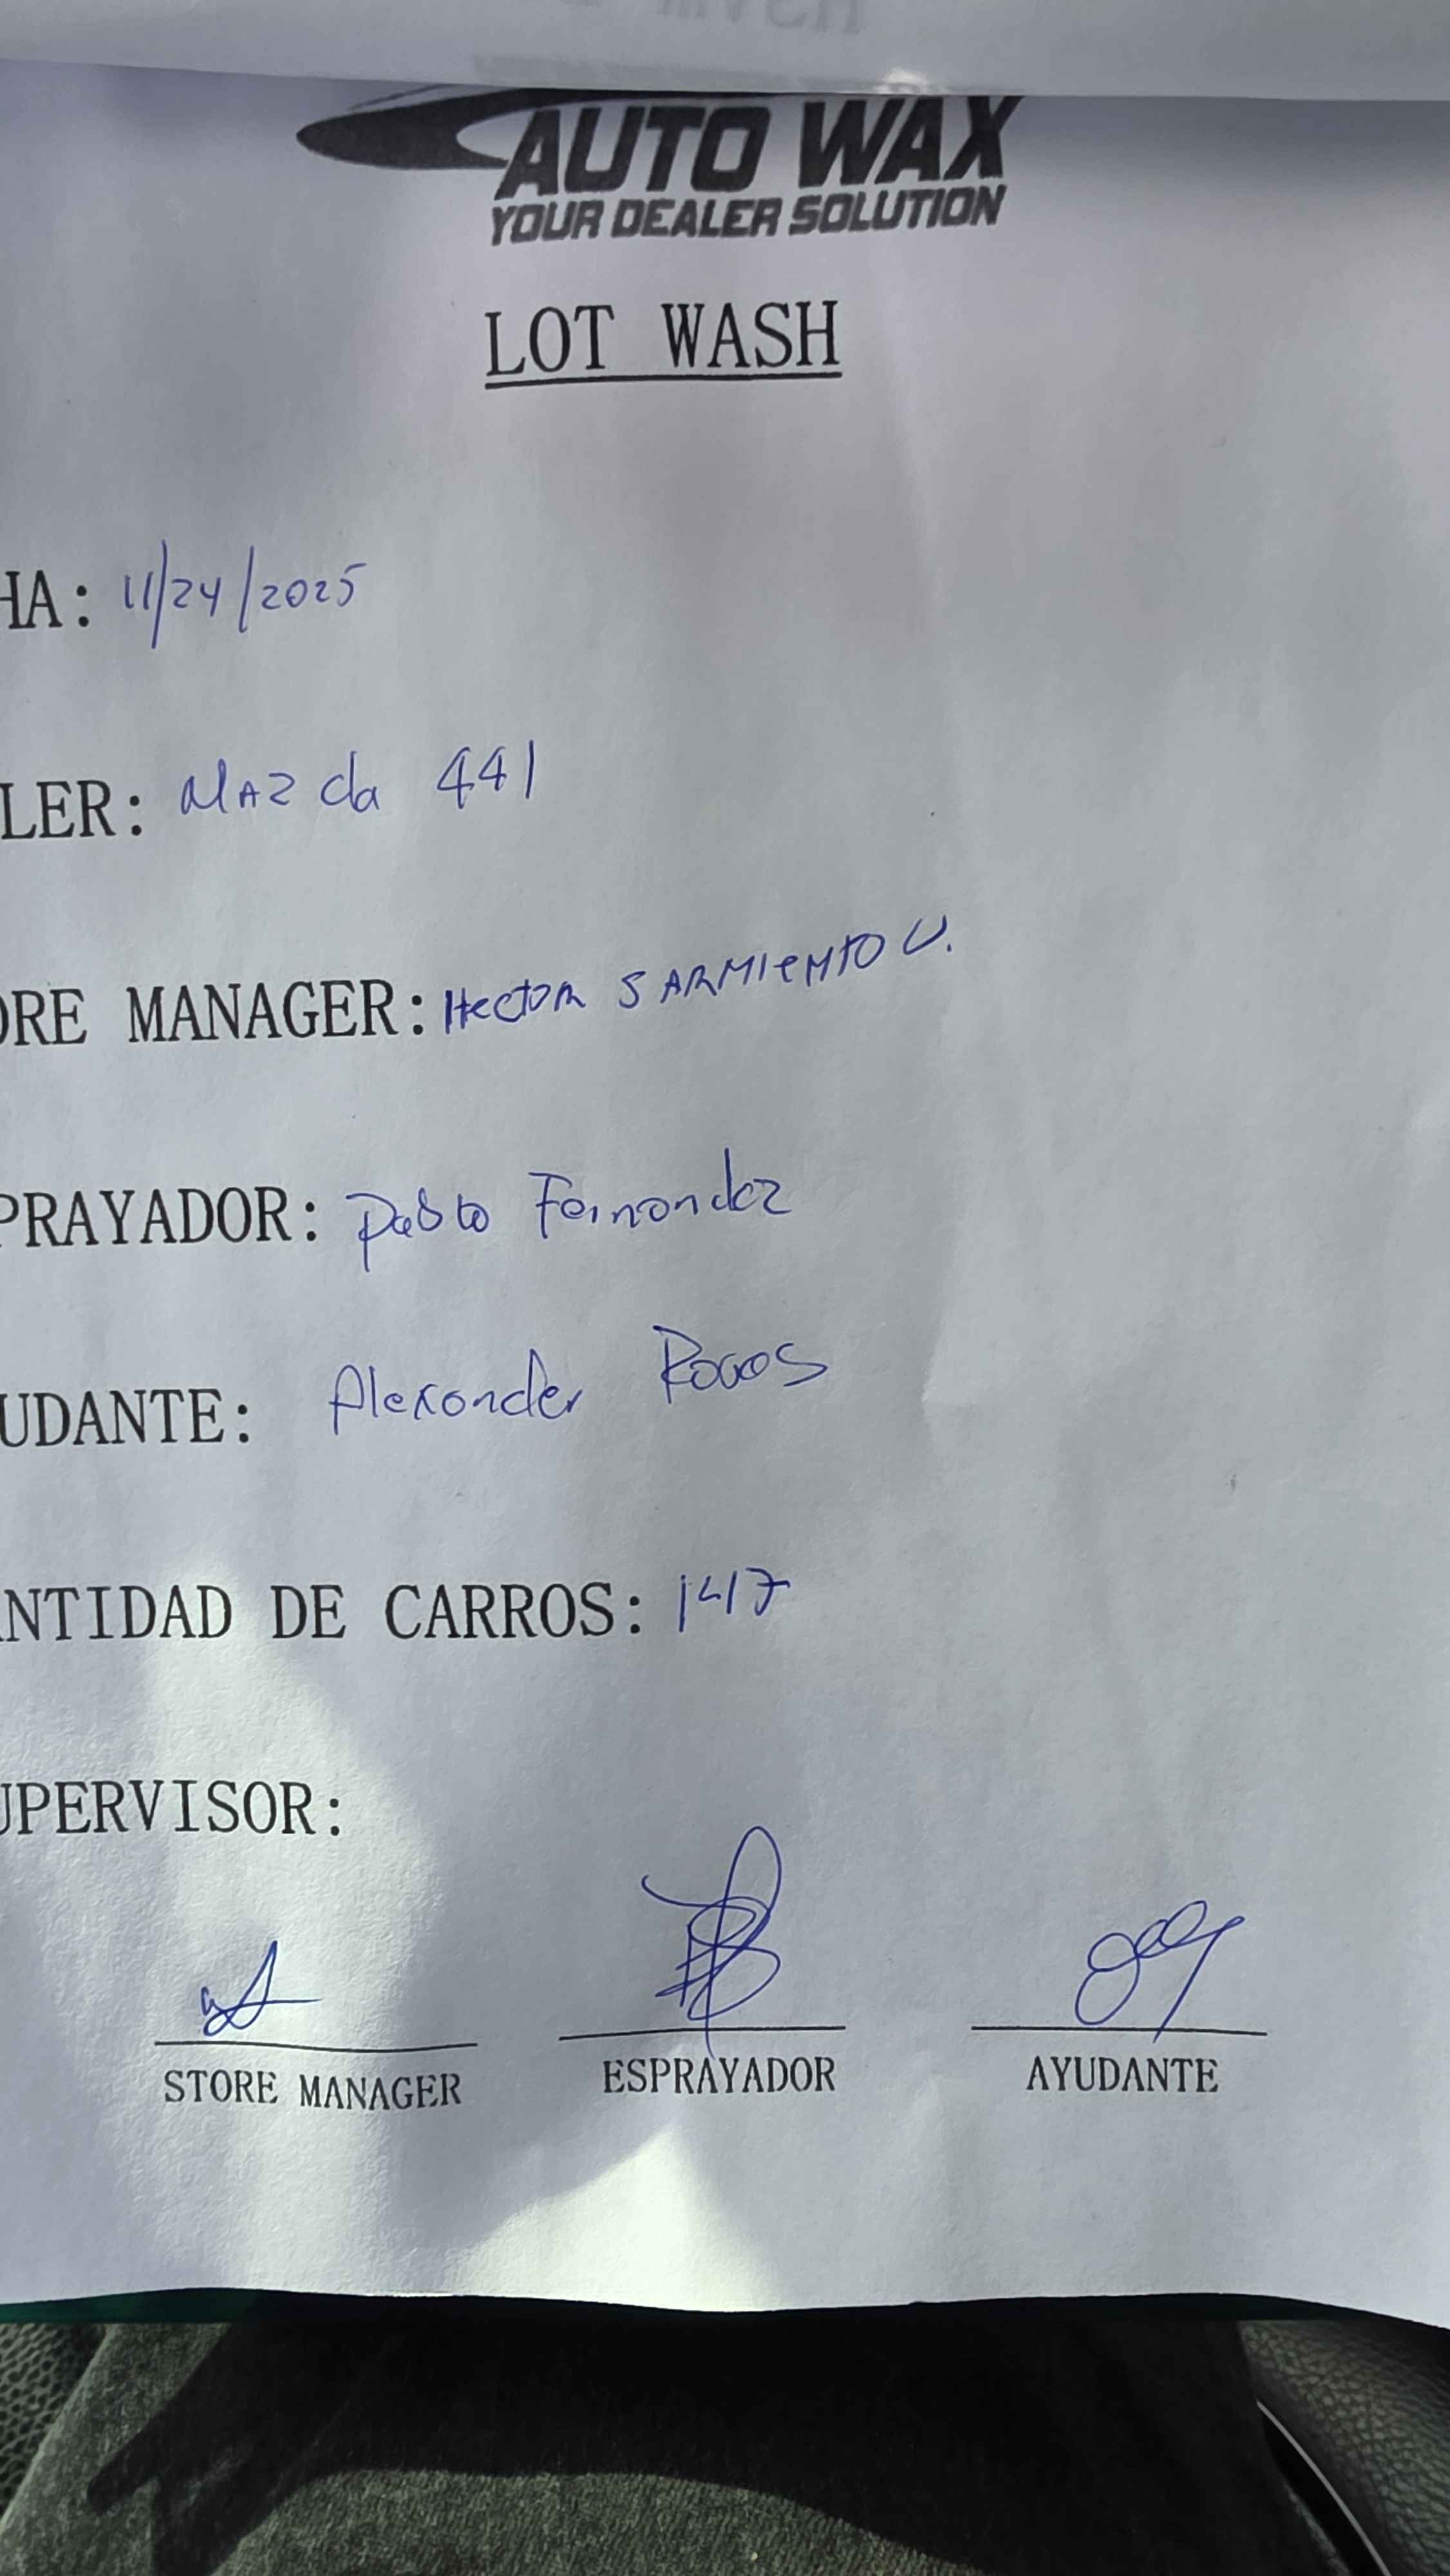 AUTO WAX
YOUR DEALER SOLUTION
LOT WASH
HA: 11/24/2025
LER: Mazda 441
ORE MANAGER: Hector SARMIENTO U.
PRAYADOR: Pablo Fernandez
UDANTE: Alexander
ANTIDAD DE CARROS: 147
UPERVISOR:
STORE MANAGER ESPRAYADOR AYUDANTE